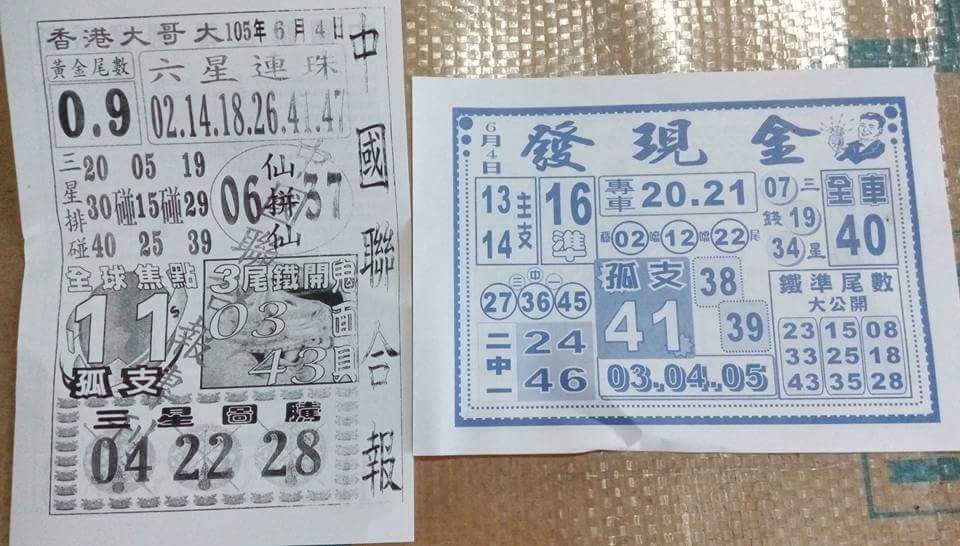 香港大哥大105年6月4日
黃金尾數
0.9
六星連珠
02.14.18.26.41.47
三星排碰
20 05 19
30碰15碰29
40 25 39
06仙拼仙37
全球焦點
11
孤支
3尾鐵開鬼面具
03
43
三星圖騰
04 22 28
中國聯合報
6月4日
發現金
13
14
主支
16
準
專車20.21
02 12 22尾
07
19
34
三星
錢
全車
40
二中一
27 36 45
孤支
41
38
39
二中一
24
46
03.04.05
鐵準尾數
大公開
23 15 08
33 25 18
43 35 28